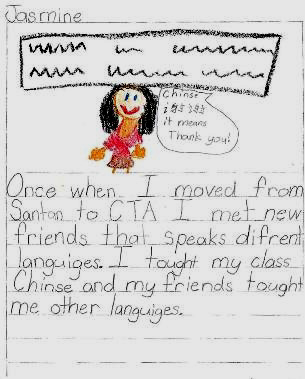 Jasmine
Chinse
谢谢
it means
Thank you!
Once when I moved from
Santan to CTA I met new
friends that speaks difrent
languiges. I tought my class
Chinse and my friends tought
me other languiges.